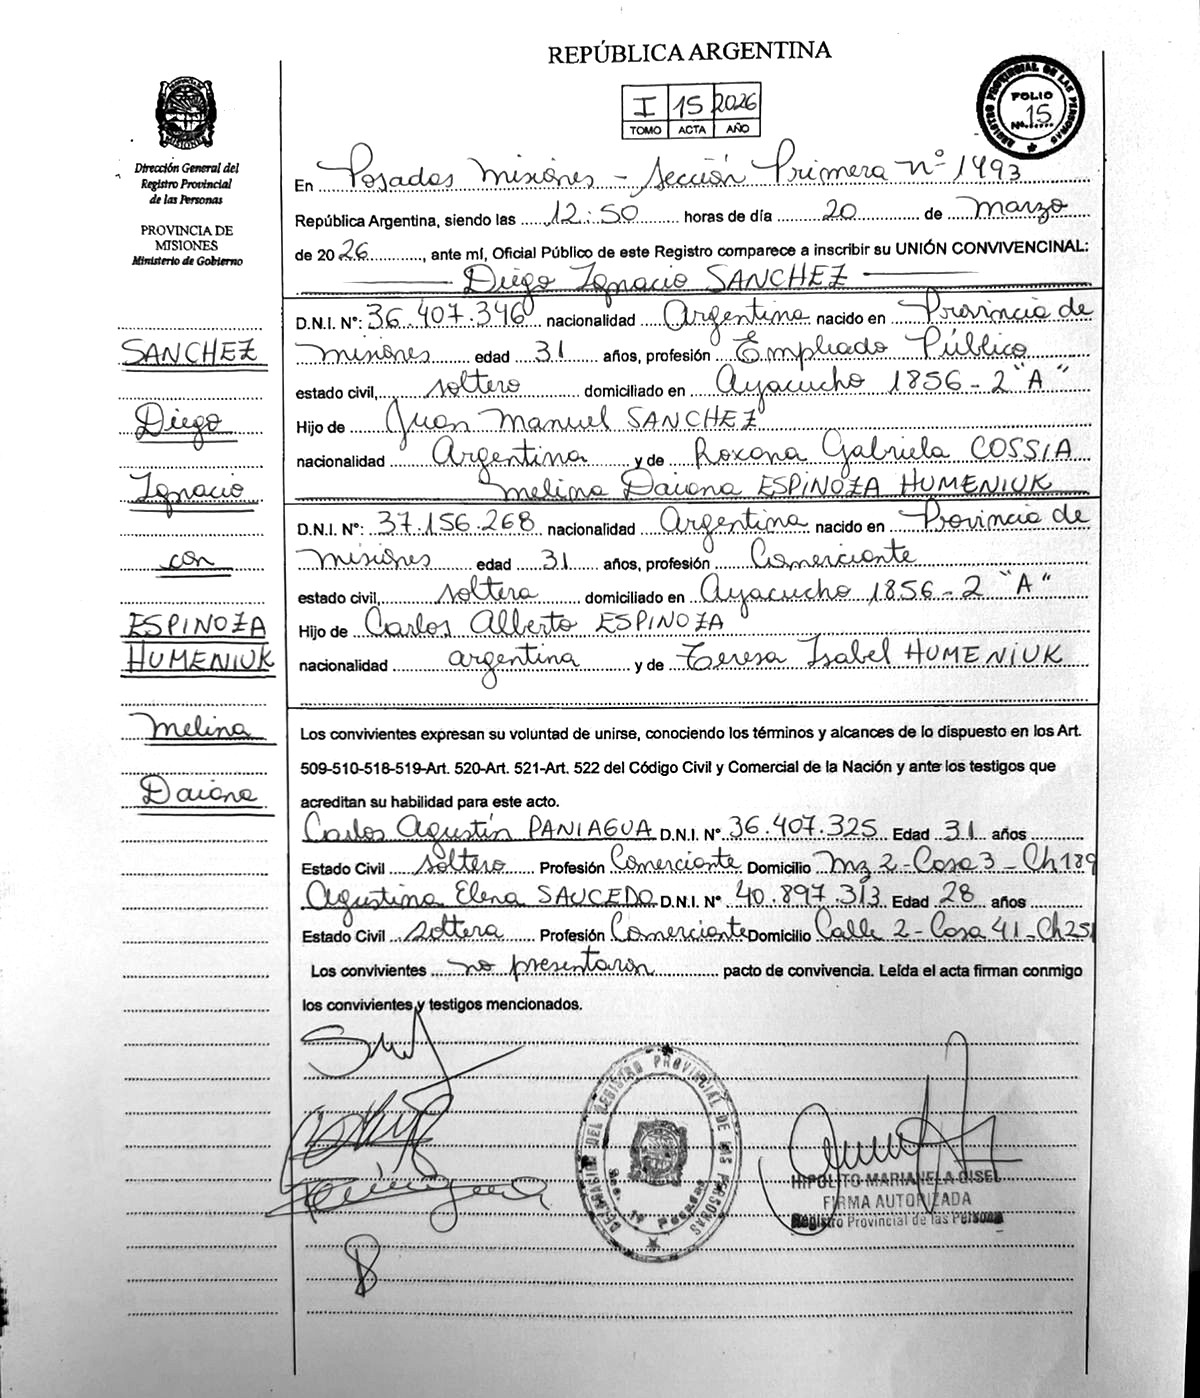 REPÚBLICA ARGENTINA
I 15 2026
TOMO ACTA AÑO
REGISTRO PROVINCIAL DE LAS PERSONAS
FOLIO
Nº 15
PROVINCIA DE
MISIONES
Dirección General del
Registro Provincial
de las Personas
PROVINCIA DE
MISIONES
Ministerio de Gobierno
SANCHEZ
Diego
Ignacio
con
ESPINOZA
HUMENIUK
Melina
Daiana
En Posadas Misiones - Sección Primera nº 1493
República Argentina, siendo las 12:50 horas de día 20 de Marzo
de 2026, ante mí, Oficial Público de este Registro comparece a inscribir su UNIÓN CONVIVENCINAL:
Diego Ignacio SANCHEZ
D.N.I. Nº: 36.407.346 nacionalidad Argentina nacido en Provincia de
Misiones edad 31 años, profesión Empleado Público
estado civil, soltero domiciliado en Ayacucho 1856-2 "A"
Hijo de Juan Manuel SANCHEZ
nacionalidad Argentina y de Roxana Gabriela COSSIA
Melina Daiana ESPINOZA HUMENIUK
D.N.I. Nº: 37.156.268 nacionalidad Argentina nacido en Provincia de
Misiones edad 31 años, profesión Comerciante
estado civil, soltera domiciliado en Ayacucho 1856-2 "A"
Hijo de Carlos Alberto ESPINOZA
nacionalidad argentina y de Teresa Isabel HUMENIUK
Los convivientes expresan su voluntad de unirse, conociendo los términos y alcances de lo dispuesto en los Art.
509-510-518-519-Art. 520-Art. 521-Art. 522 del Código Civil y Comercial de la Nación y ante los testigos que
acreditan su habilidad para este acto.
Carlos Agustín PANIAGUA D.N.I. Nº 36.407.325 Edad 31 años
Estado Civil soltero Profesión Comerciante Domicilio Mz 2-Casa 3-Ch 189
Agustina Elena SAUCEDO D.N.I. Nº 40.897.313 Edad 28 años
Estado Civil soltera Profesión Comerciante Domicilio Calle 2-Casa 41-Ch 251
Los convivientes no presentaron pacto de convivencia. Leída el acta firman conmigo
los convivientes y testigos mencionados.
DEL REGISTRO PROVINCIAL DE LAS PERSONAS
Posadas
HIPOLITO MARIANELA GISEL
FIRMA AUTORIZADA
Registro Provincial de las Personas